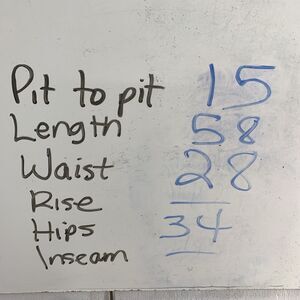 Pit to pit 15
Length 58
Waist 28
Rise —
Hips 34
Inseam —